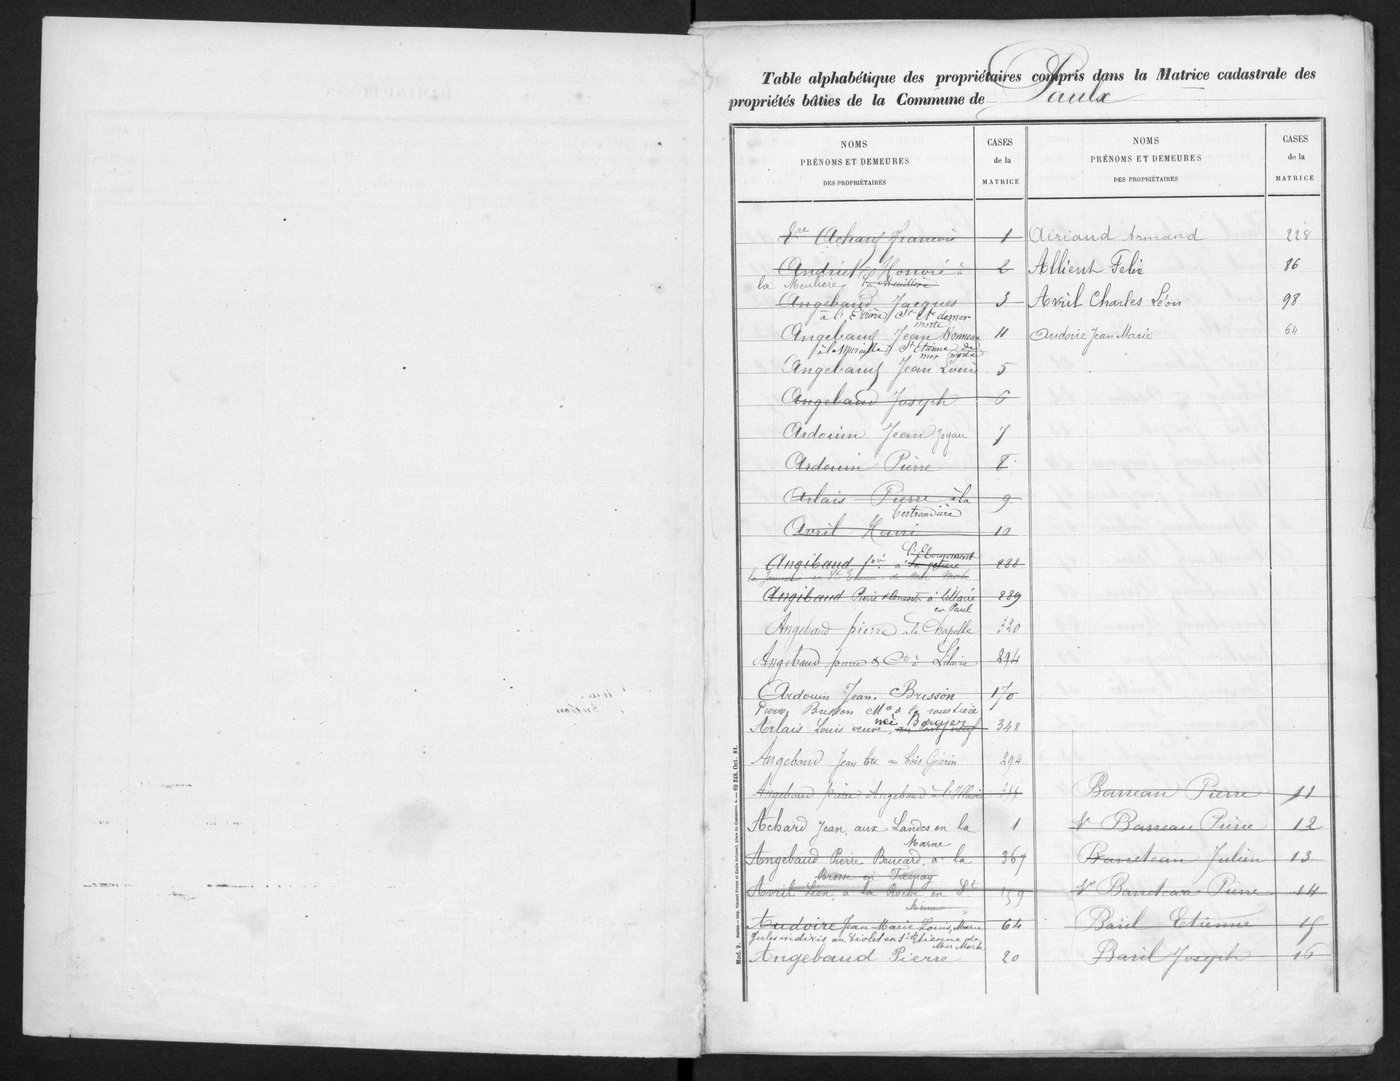 Table alphabétique des propriétaires compris dans la Matrice cadastrale des
propriétés bâties de la Commune de Paulx
NOMS
PRÉNOMS ET DEMEURES
DES PROPRIÉTAIRES
CASES
de la
MATRICE
Vve Achard Francois 1
Andriet Honoré à 2
la Meulière la Meullière
Angebaud Jacques 3
à l'Etrière St Ete de mer
morte
Angebaud Jean Bonneau 4
St Etienne de
mer morte
Angebaud Jean Louis 5
Angebaud Joseph 6
Ardouin Jean Joyau 7
Ardouin Pierre 8
Arlais Pierre à la 9
bertrandière
Avril Henri 10
l'Ebergement
Angibaud à la 288
en St Etienne de Mer Morte
Angibaud Pierre & Consorts à l'illairé 289
en Paul
Angebaud pierre à la Chapelle 320
Angebaud pierre & Cts à Lilairé 294
Ardouin Jean. Brisson 170
Pierre Brisson Me à la roustière
Arlais Louis veuve, née Boryer 348
Angebaud Jean tete au bois Guérin 294
Angebaud pierre Angebaud à l'Illairé 344
Achard Jean, aux Landes en la 1
Marne
Angebaud Pierre Boucard, à la 367
Brosse en Fresnay
Avril Léon, à la Roche en St 159
Même
Audoire Jean Marie Louis, Marie 64
Jules indivis au Violet en St Etienne de
Mer Morte
Angebaud Pierre 20
NOMS
PRÉNOMS ET DEMEURES
DES PROPRIÉTAIRES
CASES
de la
MATRICE
Airiaud Armand 228
Allient Felix 86
Avril Charles Léon 98
Audoire Jean Marie 64
Barreau Pierre 11
Ve Barreau Pierre 12
Barreteau Julien 13
Ve Barreteau Pierre 14
Baril Etienne 15
Baril Joseph 16